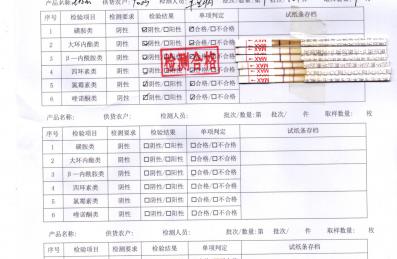 产品名称: 供货农户: 检测人员: 批次/数量:第 批次/ 件 取样数量: 枚
序号 检验项目 检测要求 检验结果 单项判定 试纸条存档
1 磺胺类 阴性 ☑阴性/□阳性 ☑合格/□不合格
2 大环内酯类 阴性 ☑阴性/□阳性 ☑合格/□不合格
3 β一内酰胺类 阴性 ☑阴性/□阳性 ☑合格/□不合格
4 四环素类 阴性 ☑阴性/□阳性 ☑合格/□不合格
5 氯霉素类 阴性 ☑阴性/□阳性 ☑合格/□不合格
6 喹诺酮类 阴性 ☑阴性/□阳性 ☑合格/□不合格
检测合格
MAX
MAX
MAX
MAX
MAX
产品名称: 供货农户: 检测人员: 批次/数量:第 批次/ 件 取样数量: 枚
序号 检验项目 检测要求 检验结果 单项判定 试纸条存档
1 磺胺类 阴性 □阴性/□阳性 □合格/□不合格
2 大环内酯类 阴性 □阴性/□阳性 □合格/□不合格
3 β一内酰胺类 阴性 □阴性/□阳性 □合格/□不合格
4 四环素类 阴性 □阴性/□阳性 □合格/□不合格
5 氯霉素类 阴性 □阴性/□阳性 □合格/□不合格
6 喹诺酮类 阴性 □阴性/□阳性 □合格/□不合格
产品名称: 供货农户: 检测人员: 批次/数量:第 批次/ 件 取样数量: 枚
序号 检验项目 检测要求 检验结果 单项判定 试纸条存档
1 磺胺类 阴性 □阴性/□阳性 □合格/□不合格